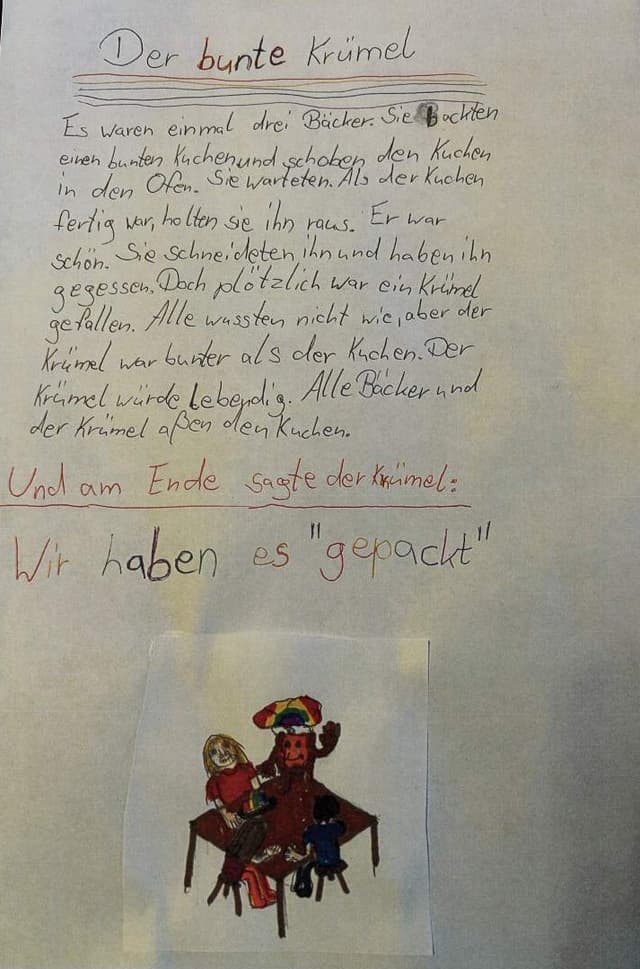 Der bunte Krümel
Es waren einmal drei Bäcker. Sie backten
einen bunten Kuchen und schoben den Kuchen
in den Ofen. Sie warteten. Als der Kuchen
fertig war, holten sie ihn raus. Er war
schön. Sie schneideten ihn und haben ihn
gegessen. Doch plötzlich war ein Krümel
gefallen. Alle wussten nicht wie, aber der
Krümel war bunter als der Kuchen. Der
Krümel würde lebendig. Alle Bäcker und
der Krümel aßen den Kuchen.
Und am Ende sagte der Krümel:
Wir haben es "gepackt"